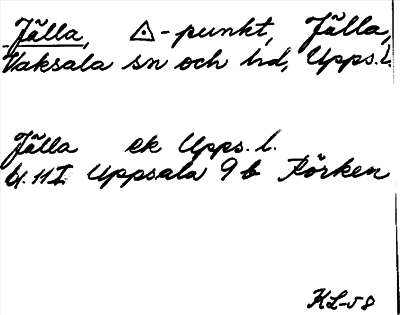 Jälla, △-punkt, Jälla,
Vaksala sn och hd, Upps.l.
Jälla ek Upps.l.
bl. 11 I Uppsala 9 b Rörken
KL-58